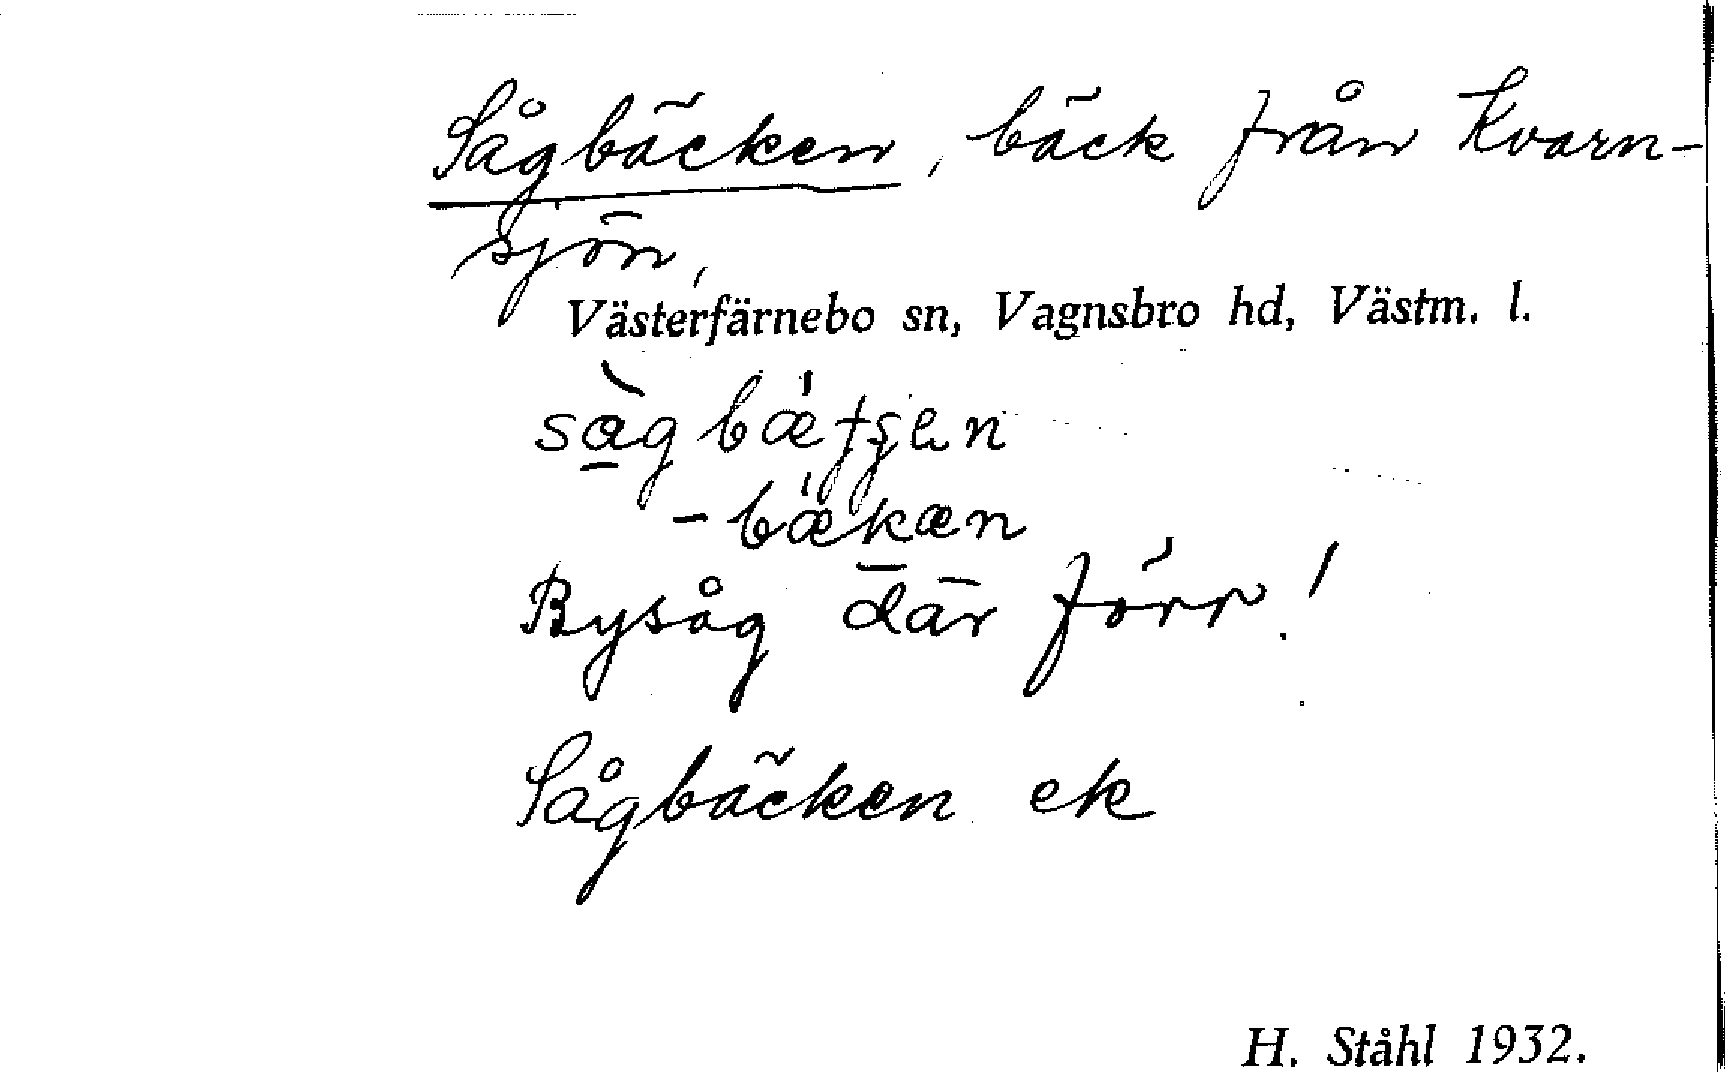 Sågbäcken, bäck från Kvarn-
sjön,
Västerfärnebo sn, Vagnsbro hd, Västm. l.
-bækæn
Bysåg där förr!
Sågbäcken ek
H. Ståhl 1932.